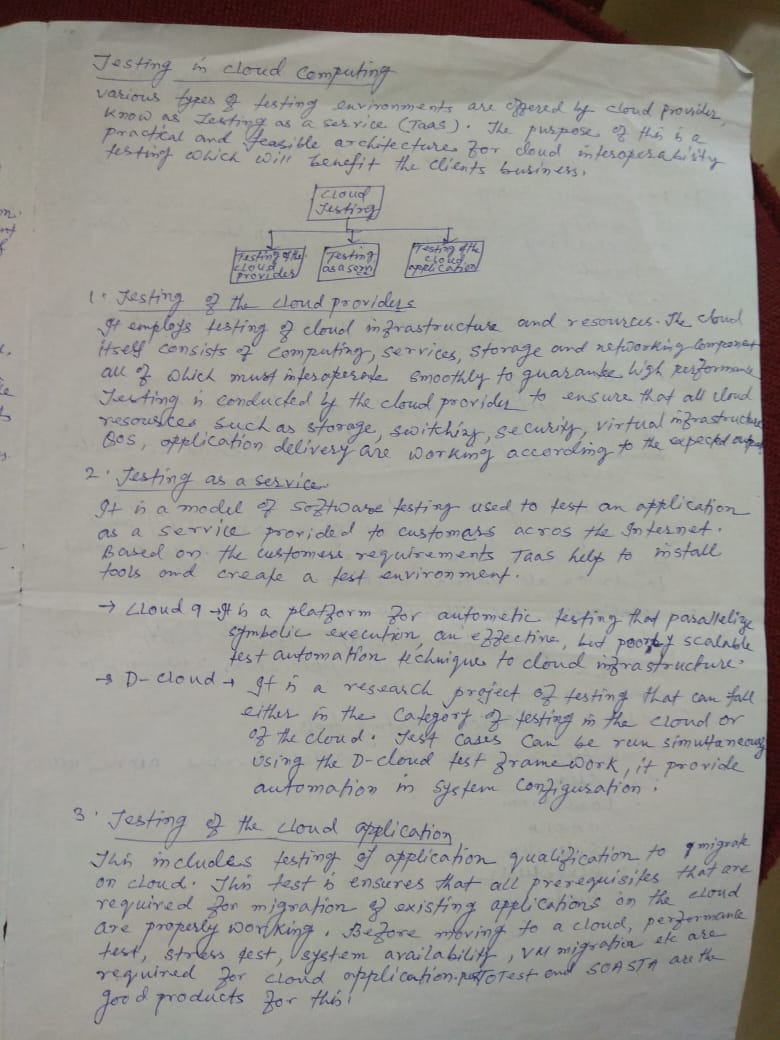 Testing in cloud computing
various types of testing environments are offered by cloud provider,
know as Testing as a service (TaaS). The purpose of this is a
practical and feasible architecture for cloud interoperability
testing which will benefit the clients business.
cloud
Testing
Testing of the
cloud
providers
Testing
as a serv
Testing of the
cloud
application
1. Testing of the cloud providers
It employs testing of cloud infrastructure and resources. The cloud
itself consists of computing, services, storage and networking component
all of which must interoperate smoothly to guarantee high performance
Testing is conducted by the cloud provider to ensure that all cloud
resources such as storage, switching, security, virtual infrastructure
QOS, application delivery are working according to the expected output
2. Testing as a service
It is a model of software testing used to test an application
as a service provided to customers acros the Internet.
Based on the customers requirements Taas help to install
tools and create a test environment.
→ cloud 9 → It is a platform for autometic testing that parallelize
symbolic execution, an effective, but poorly scalable
test automation technique to cloud infrastructure.
→ D-cloud → It is a research project of testing that can fall
either in the category of testing in the cloud or
of the cloud. Test cases can be run simultaneously
using the D-cloud test framework, it provide
automation in system configuration.
3. Testing of the cloud application
This includes testing of application qualification to migrate
on cloud. This test is ensures that all prerequisites that are
required for migration of existing applications on the cloud
are properly working. Before moving to a cloud, performance
test, stress test, system availability, VM migration etc are
required for cloud application. Test and SOASTA are the
good products for this!